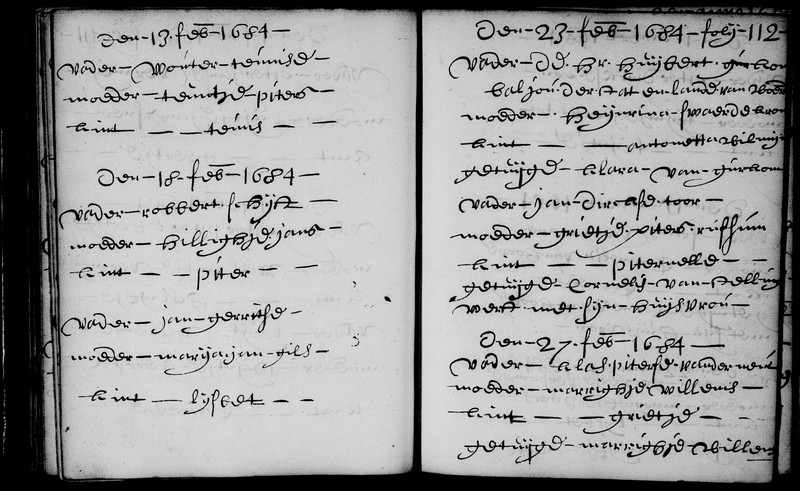 Den-13-feb-1684-
vader-wouter-teunise-
moeder-teuntje-piters-
kint - - teunis - -
Den-18-feb-1684-
vader-robbert-schijt-
moeder-hillighje jans-
kint - - piter - -
vader-jan-gerritse-
moeder-marija jan-gils-
kint - - lijsbet - -
Den-23-feb-1684-folij-112-
vader-Dd. Hr. Huijbert
baljou-der-stat en-lande van
moeder-Heijnrina-swaerdekroon
kint - - antonetta wilmijn
getuijge-klara-van-
vader-jan-dircksе-toor-
moeder-grietje piters-
kint - - piternelle - -
getuijge-Cornelis-van-
wert-met-sijn-huijsvrou-
Den-27-feb-1684-
vader-klas piterse vander
moeder-marrighje willems-
kint - - grietje - -
getuijge-marrighje-willems